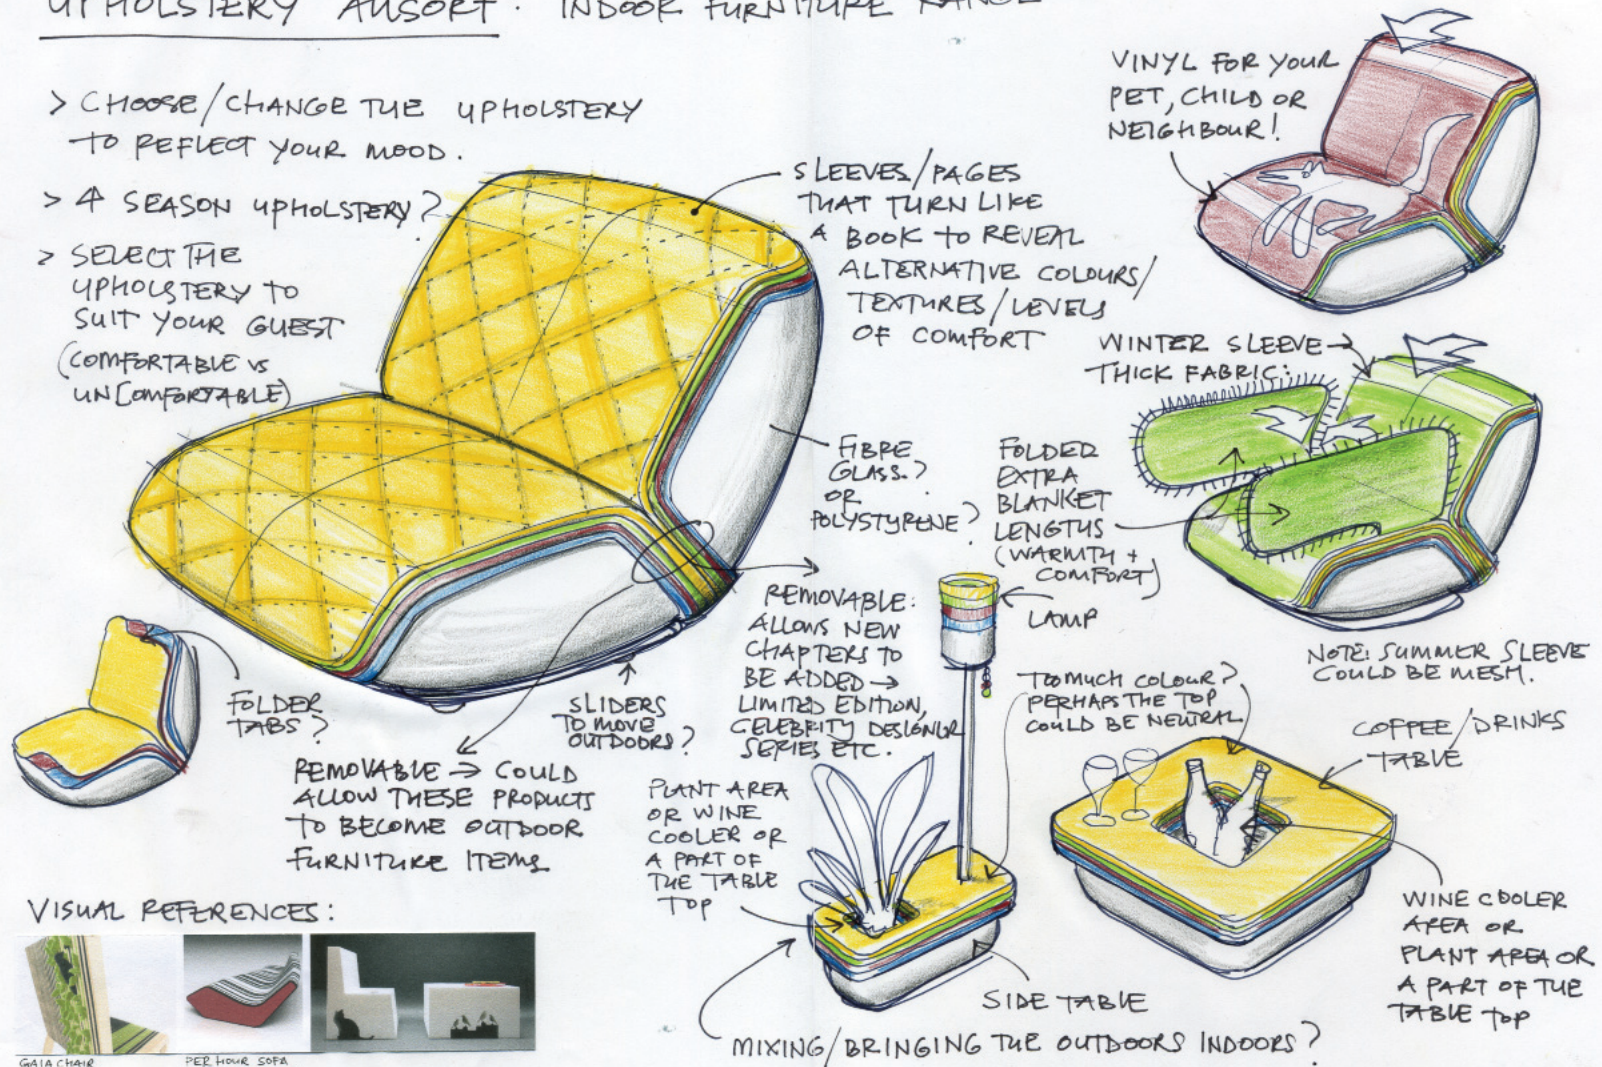 UPHOLSTERY ALLSORT: INDOOR FURNITURE RANGE
> CHOOSE/CHANGE THE UPHOLSTERY
TO REFLECT YOUR MOOD.
> 4 SEASON UPHOLSTERY?
> SELECT THE
UPHOLSTERY TO
SUIT YOUR GUEST
(COMFORTABLE VS
UNCOMFORTABLE)
SLEEVES/PAGES
THAT TURN LIKE
A BOOK TO REVEAL
ALTERNATIVE COLOURS/
TEXTURES/LEVELS
OF COMFORT
VINYL FOR YOUR
PET, CHILD OR
NEIGHBOUR!
WINTER SLEEVE →
THICK FABRIC:
FIBRE
GLASS?
OR
POLYSTYRENE?
FOLDED
EXTRA
BLANKET
LENGTHS
(WARMTH +
COMFORT)
REMOVABLE:
ALLOWS NEW
CHAPTERS TO
BE ADDED →
LIMITED EDITION,
CELEBRITY DESIGNER
SERIES ETC.
LAMP
NOTE: SUMMER SLEEVE
COULD BE MESH.
FOLDER
TABS?
SLIDERS
TO MOVE
OUTDOORS?
REMOVABLE → COULD
ALLOW THESE PRODUCTS
TO BECOME OUTDOOR
FURNITURE ITEMS
TOO MUCH COLOUR?
PERHAPS THE TOP
COULD BE NEUTRAL
COFFEE/DRINKS
TABLE
PLANT AREA
OR WINE
COOLER OR
A PART OF
THE TABLE
TOP
WINE COOLER
AREA OR
PLANT AREA OR
A PART OF THE
TABLE TOP
SIDE TABLE
MIXING/BRINGING THE OUTDOORS INDOORS?
VISUAL REFERENCES:
GAIA CHAIR
PER HOUR SOFA